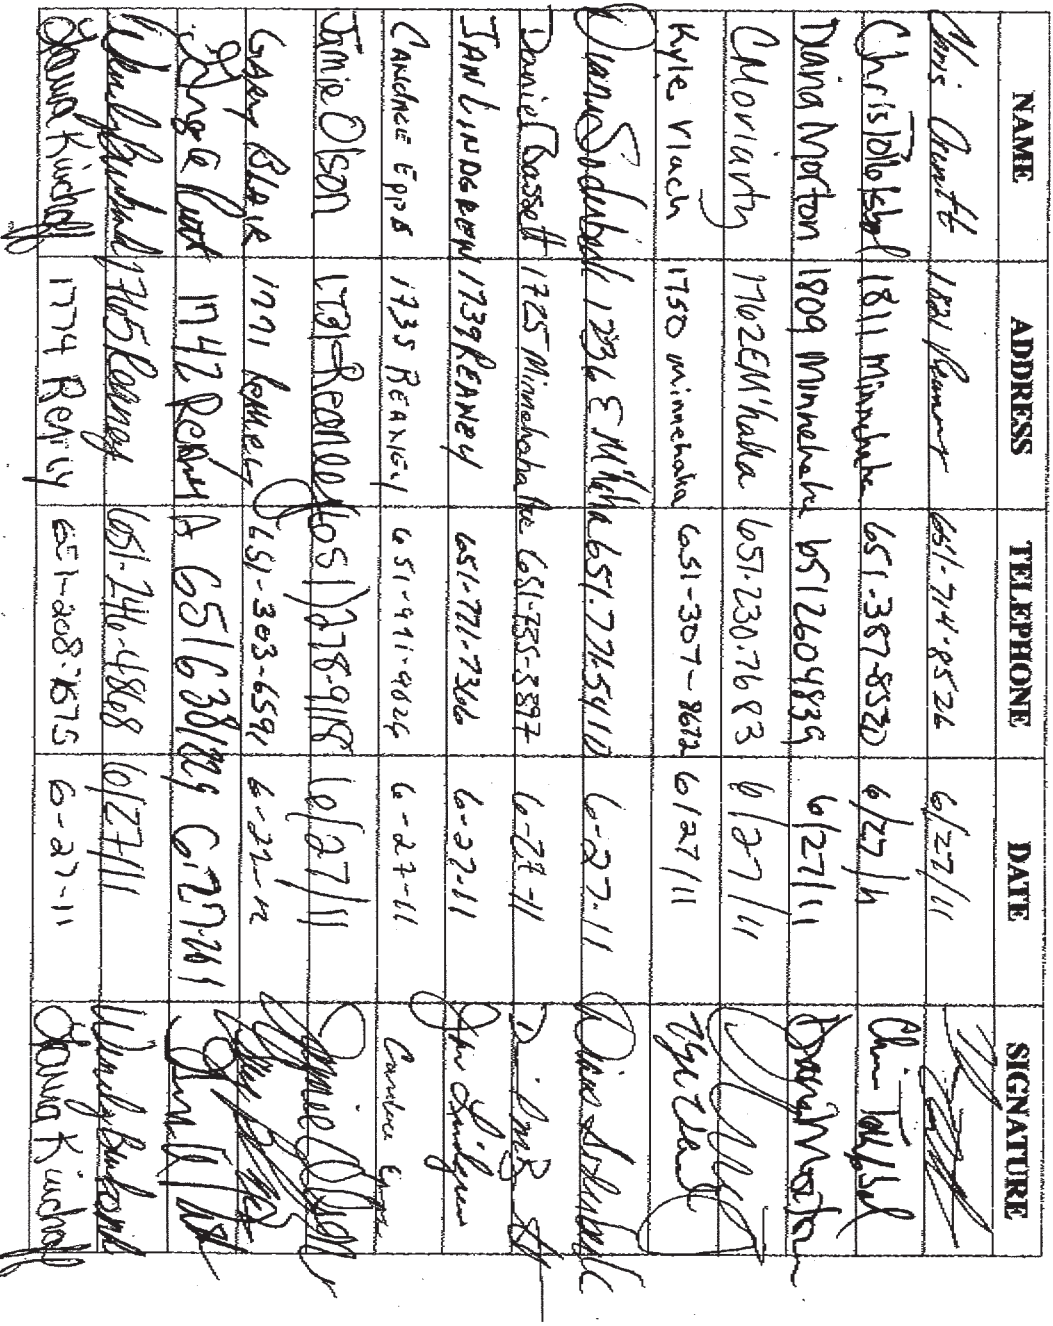 NAME ADDRESS TELEPHONE DATE SIGNATURE
Chris 1821 651-714-8526 6/27/11
Chris Tollefsbol 1811 Minnehaha 651-387-8520 6/27/11 Chris Tollefsbol
Dana Morton 1809 Minnehaha 651 2604835 6/27/11 Dana Morton
C Moriarty 1762 E M'haha 651-230-7683 6/27/11
Kyle Vlach 1750 Minnehaha 651-307-8672 6/27/11 Kyle Vlach
Diane Soderbeck 1236 E M'haha 651-771-5410 6-27-11 Diane Soderbeck
Daniel Bassett 1725 Minnehaha Ave 651-735-3897 6-27-11
JAN LINDGREN 1739 REANEY 651-771-7366 6-27-11 Jan Lindgren
CANDACE EPPS 1735 REANEY 651-491-9025 6-27-11 Candace Epps
Jamie Olson 1731 Reaney (651)278-9118 6/27/11 Jamie Olson
GARY BLAIR 1771 651-303-6591
Angela 1742 Reaney A 651 6381829
Wendy 1765 Reaney 651-246-4868 6/27/11 Wendy
Kirchoff 1774 Reaney 651-208-7575 6-27-11 Kirchoff